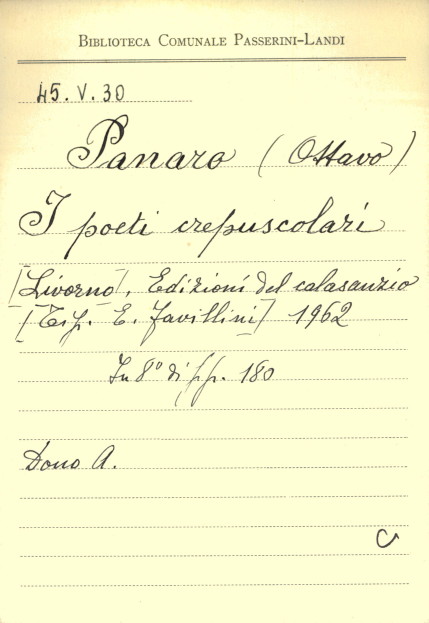 BIBLIOTECA COMUNALE PASSERINI-LANDI
45.V.30
Panaro (Ottavo)
I poeti crepuscolari
[Livorno], Edizioni del calasanzio
[Tip. E. Favillini] 1962
In 8° di pp. 180
Dono A.
C